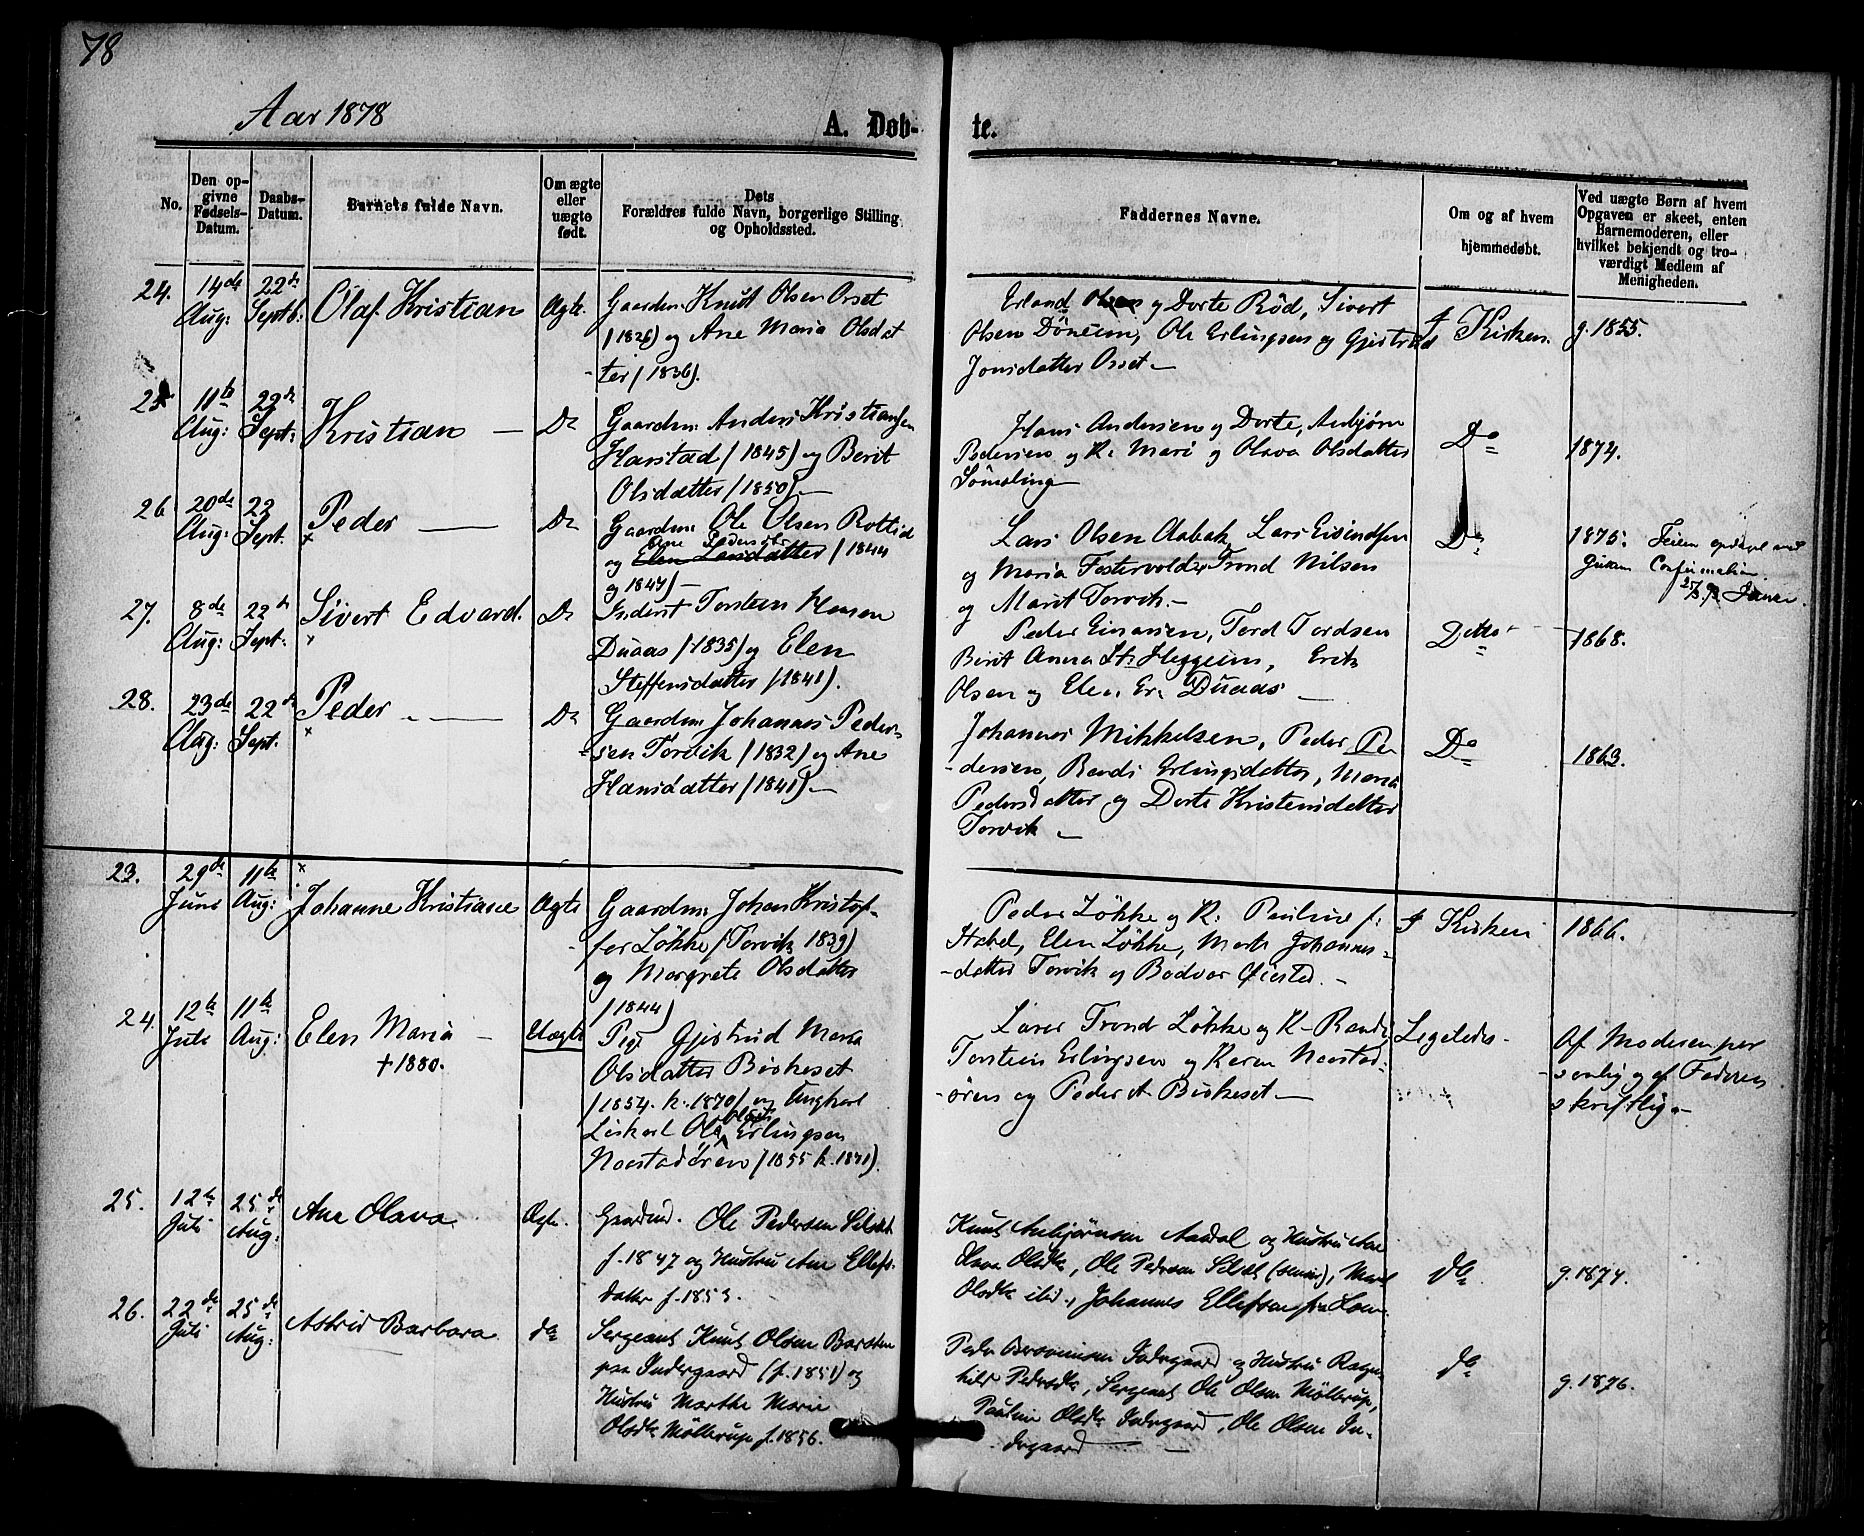 78
Aar 1878
A. Døb- te.
No.
Den op-
givne
Fødsels-
Datum.
Daabs-
Datum.
Barnets fulde Navn.
Om ægte
eller
uægte
født.
Dets
Forældres fulde Navn, borgerlige Stilling
og Opholdssted.
Faddernes Navne.
Om og af hvem
hjemmedøbt.
Ved uægte Børn af hvem
Opgaven er skeet, enten
Barnemoderen, eller
hvilket bekjendt og tro-
værdigt Medlem af
Menigheden.
24. 14de Aug: 22de Septb: Olaf Kristian Ægte
Gaardm. Knut Olsen Orset
(1826) og Ane Maria Olsdat
ter (1836).
Erland Olsen og Dorte Rød, Sivert
Olsen Døneim, Ole Erlingsen og Gjertrud
Jonsdatter Orset –
I Kirken. g. 1855.
25 11te Aug: 22de Sept: Kristian – Do
Gaardm: Anders Kristiansen
Harstad (1845) og Berit
Olsdatter (1850) –
Hans Andersen og Dorte, Anbjørn
Pedersen og K. Mari og Olava Olsdatter
Sømoling
Do 1874.
26 20de Aug: 22 Sept. Peder – Do
Gaardm: Ole Olsen
og Elen Larsdatter (1844
Ane Pedersdtr
og 1847) –
Lars Olsen Aabak, Lars Eivindsen
og Maria Fostervolder Trond Nilsen
og Marit Torvik. –
Do 1875.
Confirmation
27. 8de Aug: 22de Sept: Sivert Edvard. Do
Inderst Torstein Hansen
Duaas (1835) og Elen
Steffensdatter (1841).
Peder Einarsen, Tord Tordsen
Berit Anna St. Heggeim, Erik
Olsen og Elen Er. Duaas –
Ditto 1868.
28. 23de Aug: 22de Sept. Peder – Do
Gaardm: Johannes Peder-
sen Torvik (1832) og Ane
Hansdatter (1841) –
Johannes Mikkelsen, Peder Pe-
dersen, Erlingsdatter, Maria
Pedersdatter og Dorte Kristensdatter
Torvik –
Do 1863.
23. 29de Juni 11te Aug: Johanne Kristiane Ægte
Gaardm: Johan Kristof-
fer Løkke (Torvik 1839)
og Margrete Olsdatter
(1844)
Peder Løkke og K. Pauline f.
Stabel, Elen Løkke, Johannes-
datter Torvik og Bodvar Øiested. –
I Kirken 1866.
24. 12te Juli 11te Aug: Elen Maria – Uægte
+ 1880.
Pige Gjertrud Maria
Olsdatter Birkeset
(1854. k. 1870) og Ungkarl
Ole Erlingsen
Naastadøren (1855 k. 1871).
Lærer Trond Løkke og K. Randi,
Torstein Erlingsen og Karen Naastad-
øren og Peder A Birkeset –
Ligeledes – Af Moderen per
sonlig og af Faderen
skriftlig –
25. 12te Juli 25de Aug: Ane Olava Ægte.
Gaardmd. Ole Pedersen Silset
f. 1847 og Hustru Ane Ellefs-
datter f. 1853.
Knut Anbjørnsen Aasdal og Hustru Ane
Olava Olsdtr, Ole Pedersen Silset (senior), Marit
Olsdtr ibid., Johannes Ellefsen fra Lom.
do. g. 1874.
26. 22de Juli 25de Aug: Astrid Barbara do
Sergeant Knut Olsen Barsten
paa Indergaard (f. 1851) og
Hustru Marthe Marie
Olsdtr Møllerup f. 1856.
Peder Indergaard og Hustru Ragn-
hild Pedersdtr, Sergeant Ole Olsen Møllerup,
Pauline Olsdtr Indergaard, Ole Olsen In-
dergaard –
do g. 1876.